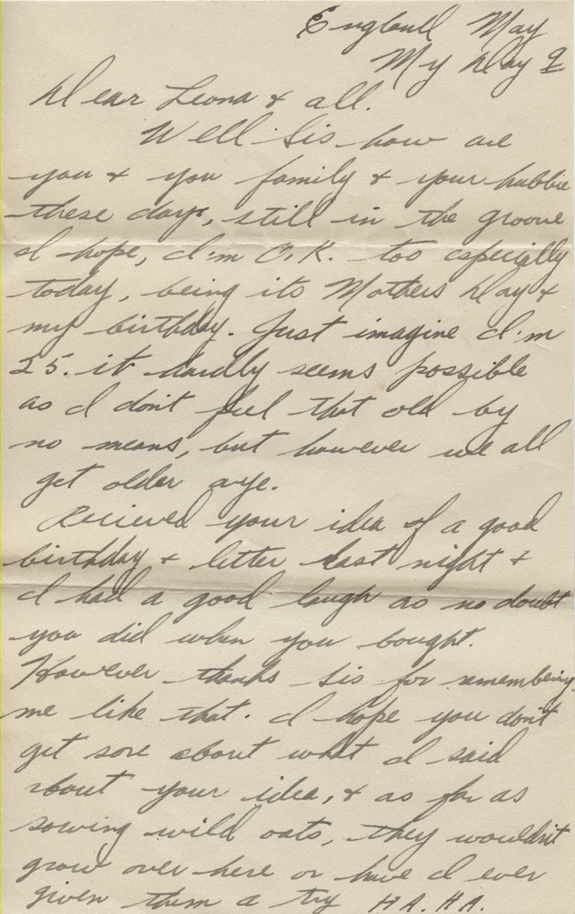 England May
My Day 9
Dear Leona & all.
Well Sis how are
you & you family & your hubbie
these days, still in the groove
I hope, I'm O.K. too especially
today, being its Mothers Day &
my birthday. Just imagine I'm
25. it hardly seems possible
as I don't feel that old by
no means, but however we all
get older aye.
Recieved your idea of a good
birthday & letter last night &
I had a good laugh as no doubt
you did when you bought.
However thanks Sis for remembeing
me like that. I hope you don't
get sore about what I said
about your idea, & as far as
sowing wild oats, they wouldn't
grow over here or have I ever
given them a try HA. HA.